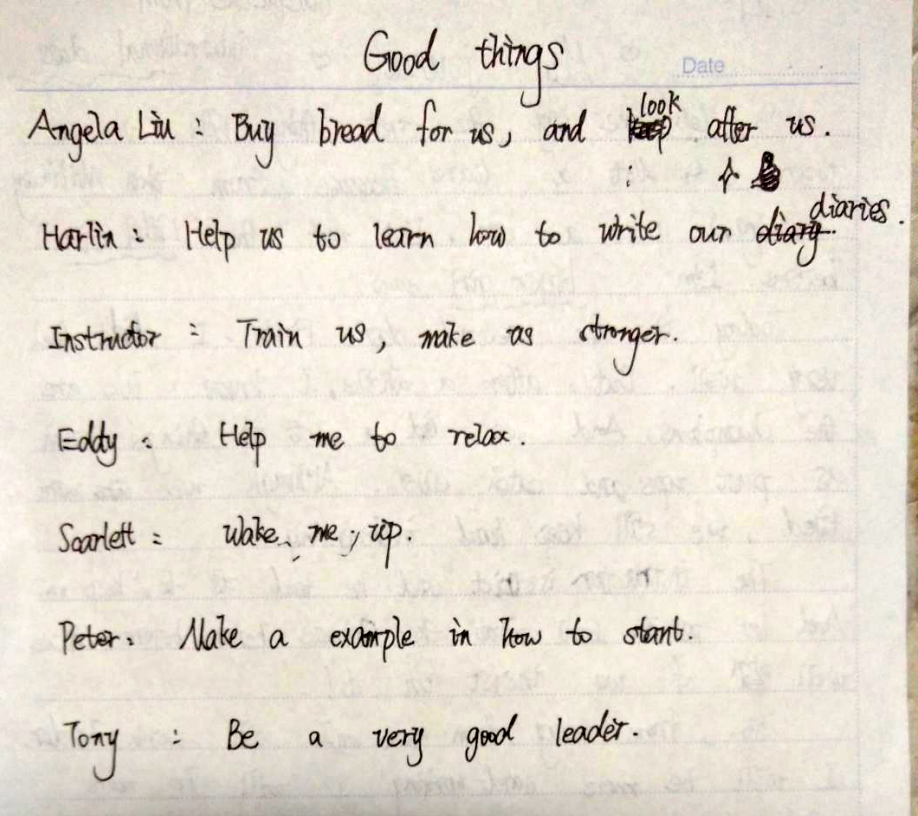 Good things
Date
Angela Liu : Buy bread for us, and look after us.
Harlin : Help us to learn how to write our diaries.
Instructor : Train us, make as stronger.
Eddy : Help me to relax.
Scarlett : Wake me up.
Peter : Make a example in how to start.
Tony : Be a very good leader.